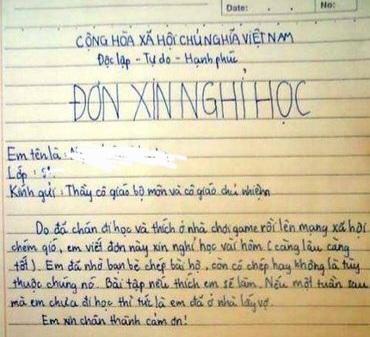 Date: . . No:
CỘNG HÒA XÃ HỘI CHỦ NGHĨA VIỆT NAM
Độc lập - Tự do - Hạnh phúc
ĐƠN XIN NGHỈ HỌC
Em tên là :
Lớp :
Kính gửi : Thầy cô giáo bộ môn và cô giáo chủ nhiệm
Do đã chán đi học và thích ở nhà chơi game rồi lên mạng xã hội
chém gió, em viết đơn này xin nghỉ học vài hôm (càng lâu càng
tốt). Em đã nhờ bạn bè chép bài hộ, còn có chép hay không là tùy
thuộc chúng nó. Bài tập nếu thích em sẽ làm. Nếu một tuần sau
mà em chưa đi học thì tức là em đã ở nhà lấy vợ.
Em xin chân thành cảm ơn!